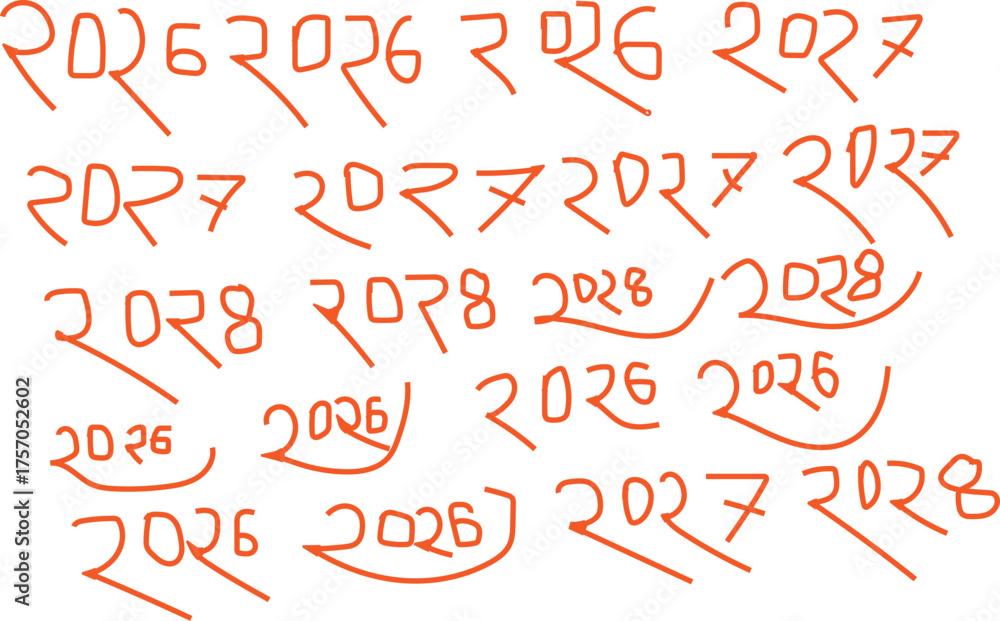 2026 2026 2026 2027
2027 2027 2027 2027
2028 2028 2028 2028
2026 2026 2026 2026
2026 2026 2027 2028
Adobe Stock | #1757052602